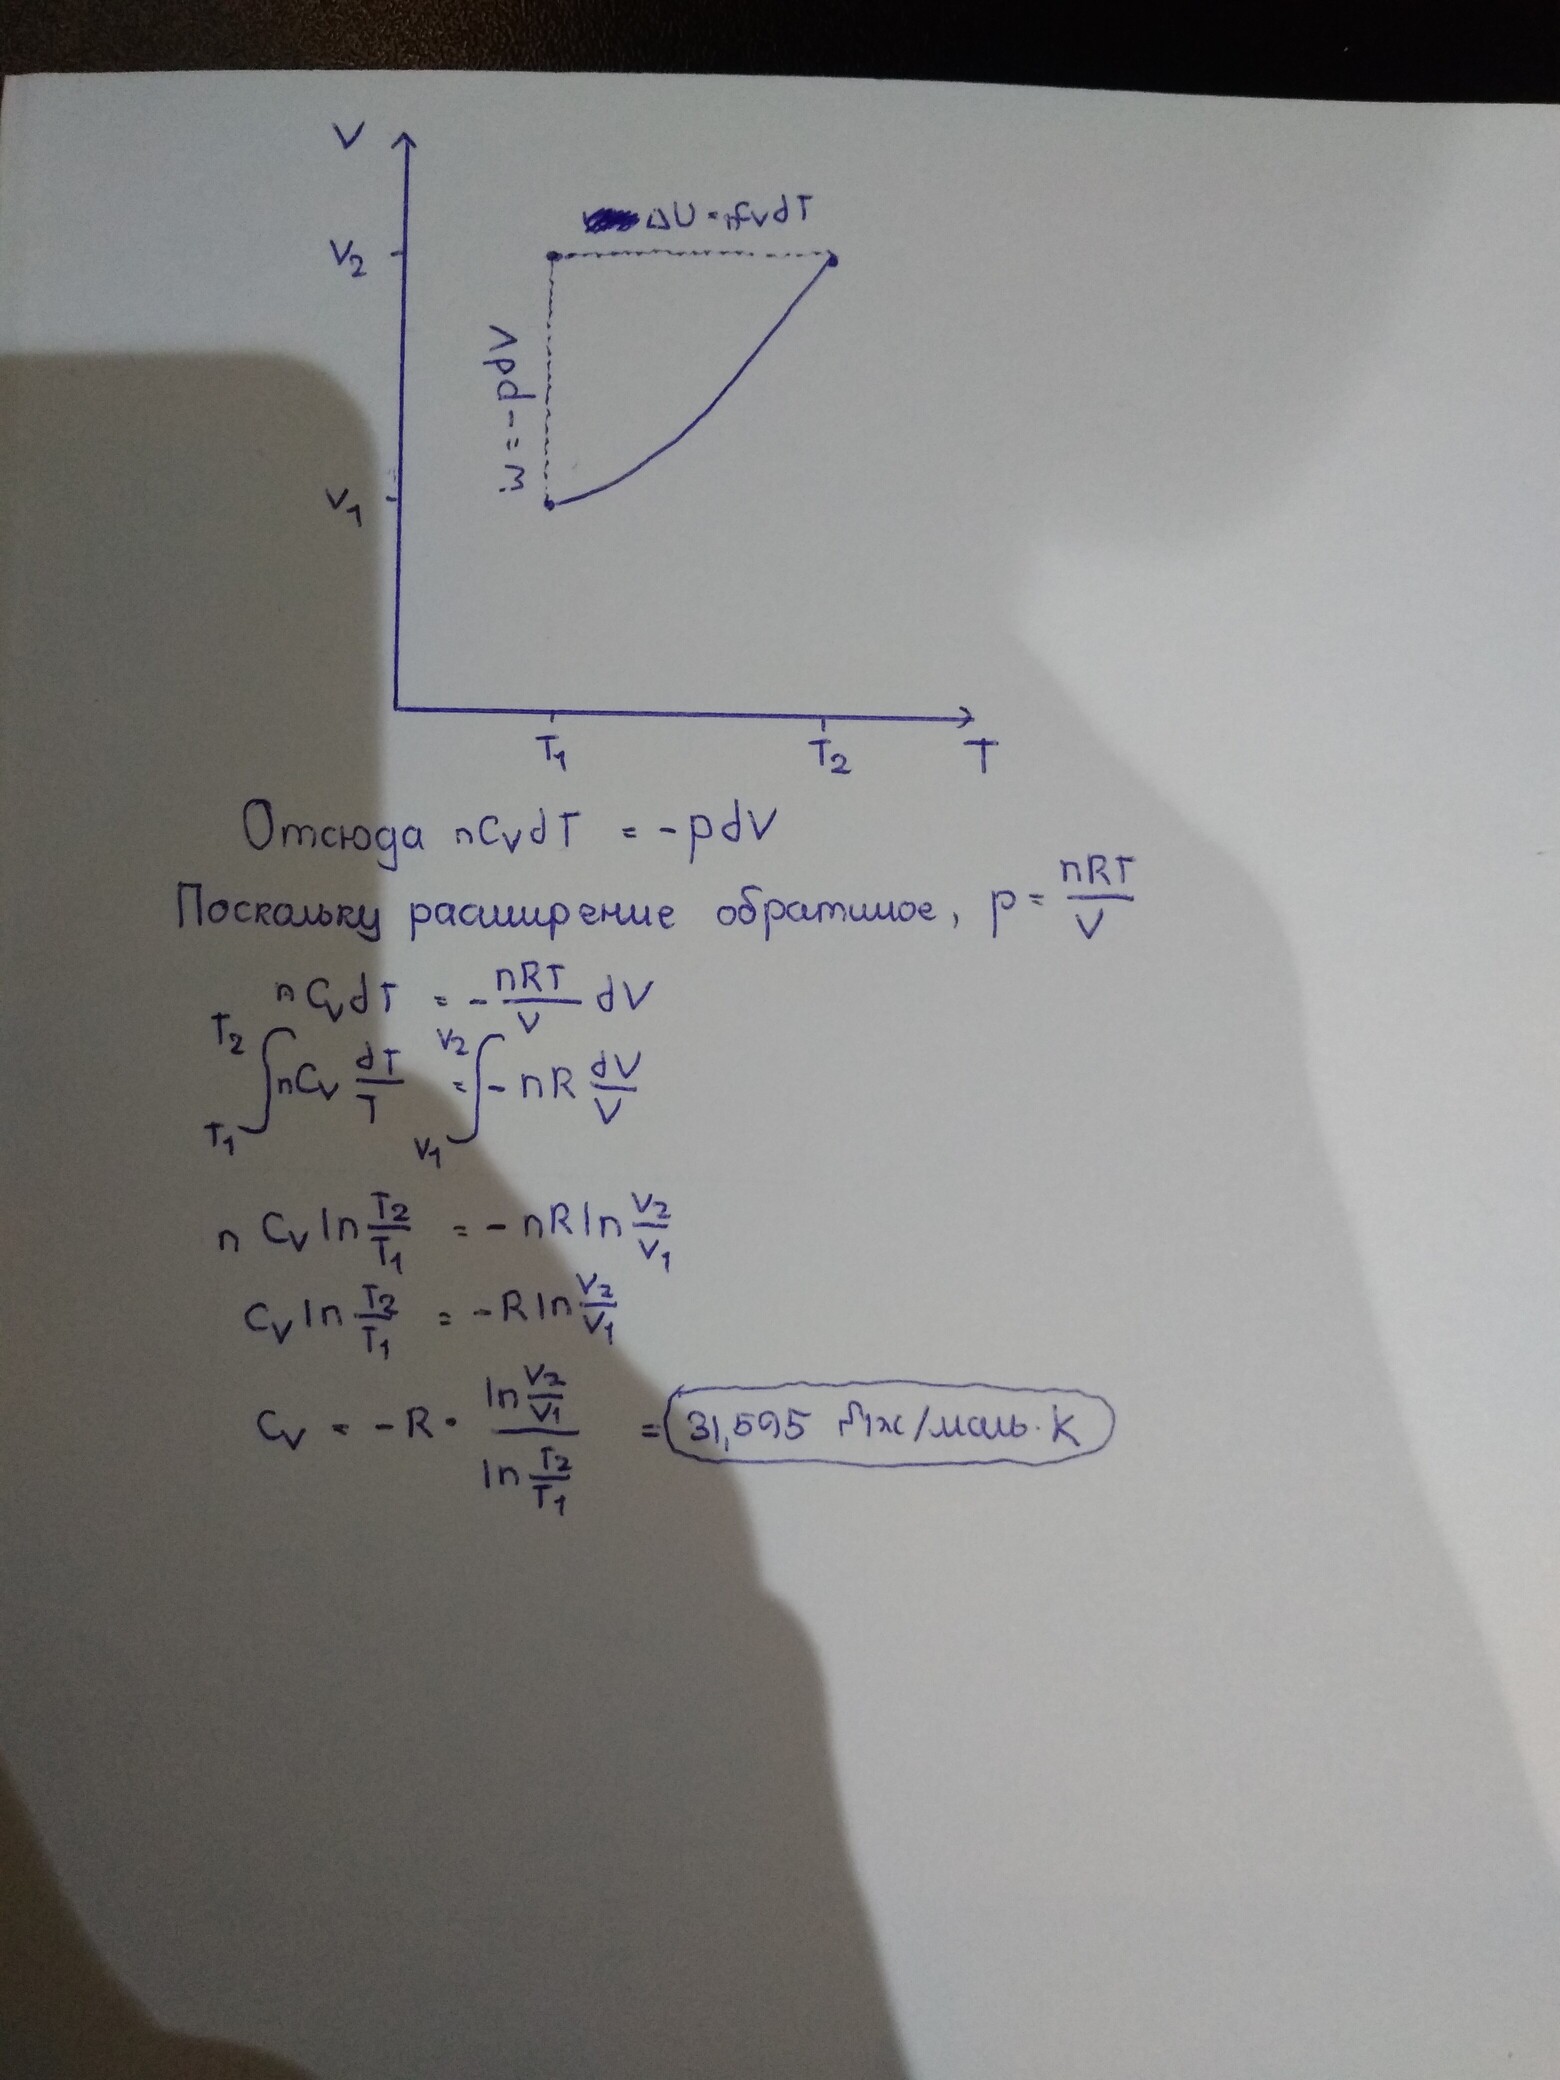 V
ΔU = nCvdT
V₂
w = -pdV
V₁
T₁ T₂ T
Отсюда nCvdT = -pdV
Поскольку расширение обратимое, p = nRT/V
nCvdT = - nRT/V dV
∫T₁T₂ nCv dT/T = ∫V₁V₂ - nR dV/V
n Cv ln T₂/T₁ = - nR ln V₂/V₁
Cv ln T₂/T₁ = -R ln V₂/V₁
Cv = -R · ln V₂/V₁ / ln T₂/T₁ = 31,595 Дж/моль·К